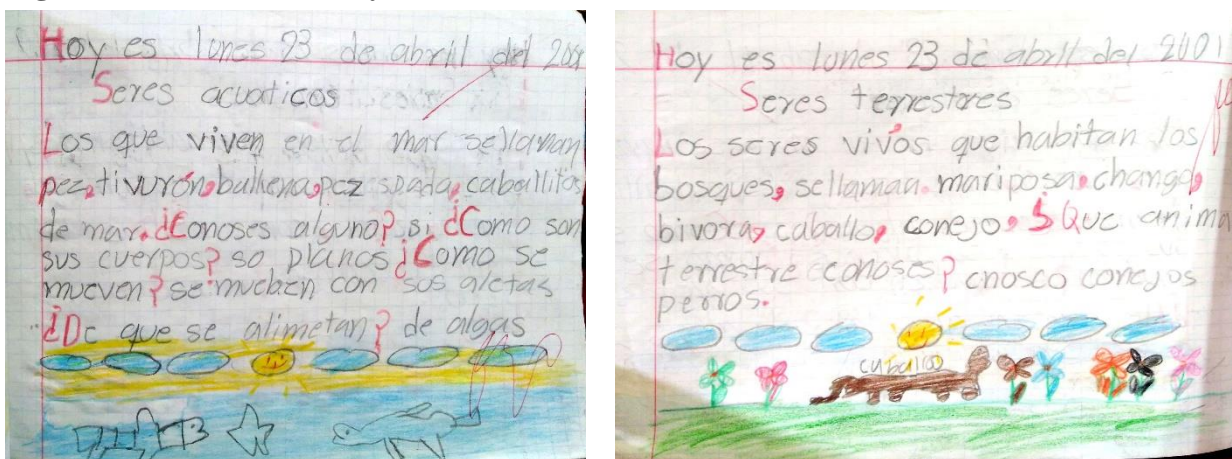 Hoy es lunes 23 de abril del 2001
Seres acuaticos
Los que viven en el mar sellaman
pez, tivurón, balhena, pez spada, caballitos
de mar. ¿Conoses alguno? si ¿Como son
sus cuerpos? so planos ¿Como se
mueven? se mueben con sus aletas
¿De que se alimetan? de algas
Hoy es lunes 23 de abril del 2001
Seres terrestores
Los seres vivos que habitan los
bosques, sellaman. mariposa, chango,
bivora, caballo, conejo, ¿Que anima
terrestre conoses? cnosco conejos
perros.
caballoo